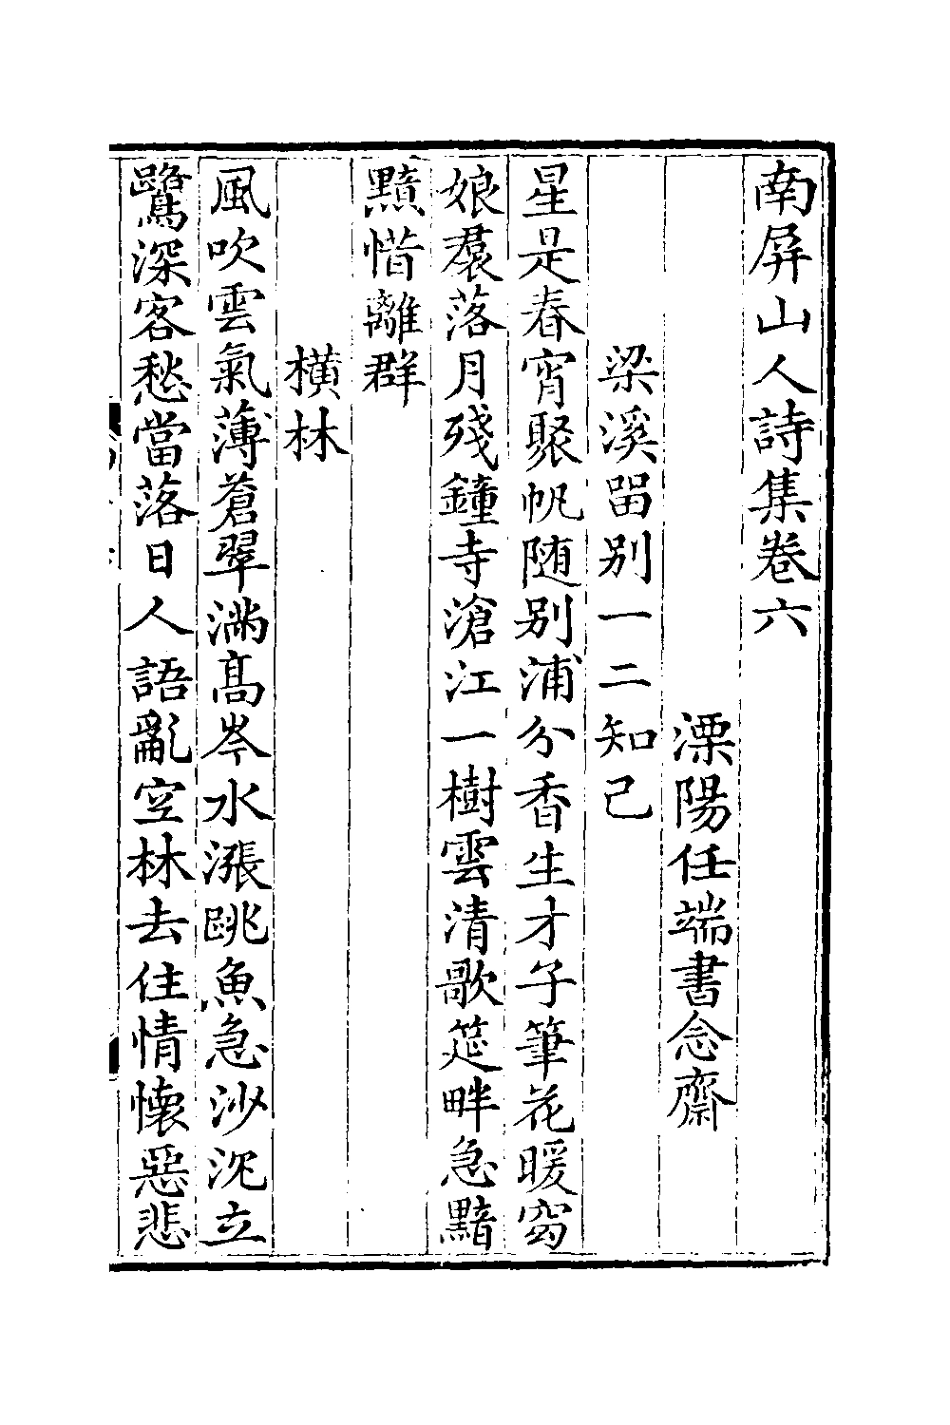 南屏山人詩集卷六
溧陽任端書念齋
梁溪畱别一二知己
星是春宵聚帆随别浦分香生才子筆花暖窈
娘裠落月殘鐘寺滄江一樹雲清歌筵畔急黯
黰惜離群
橫林
風吹雲氣薄蒼翠滿髙岑水漲跳魚急沙沉立
鷺深客愁當落日人語亂空林去住情懐惡悲